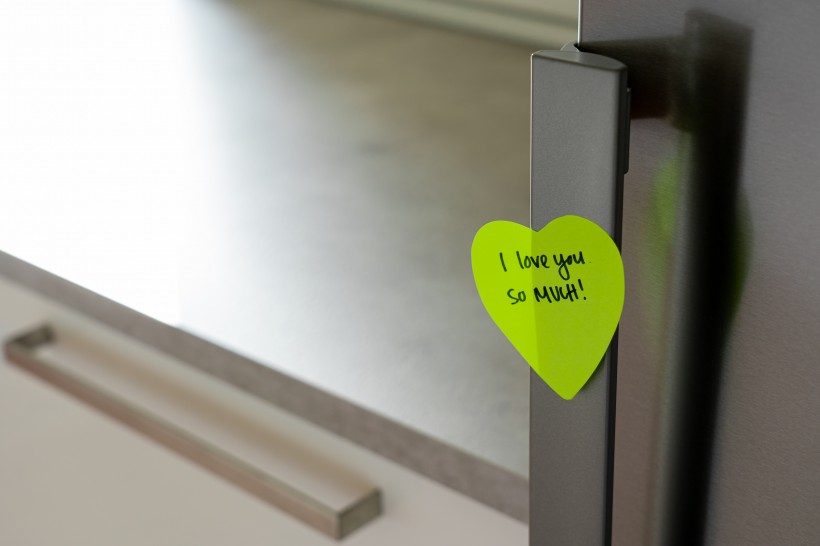 I love you
so MUCH!